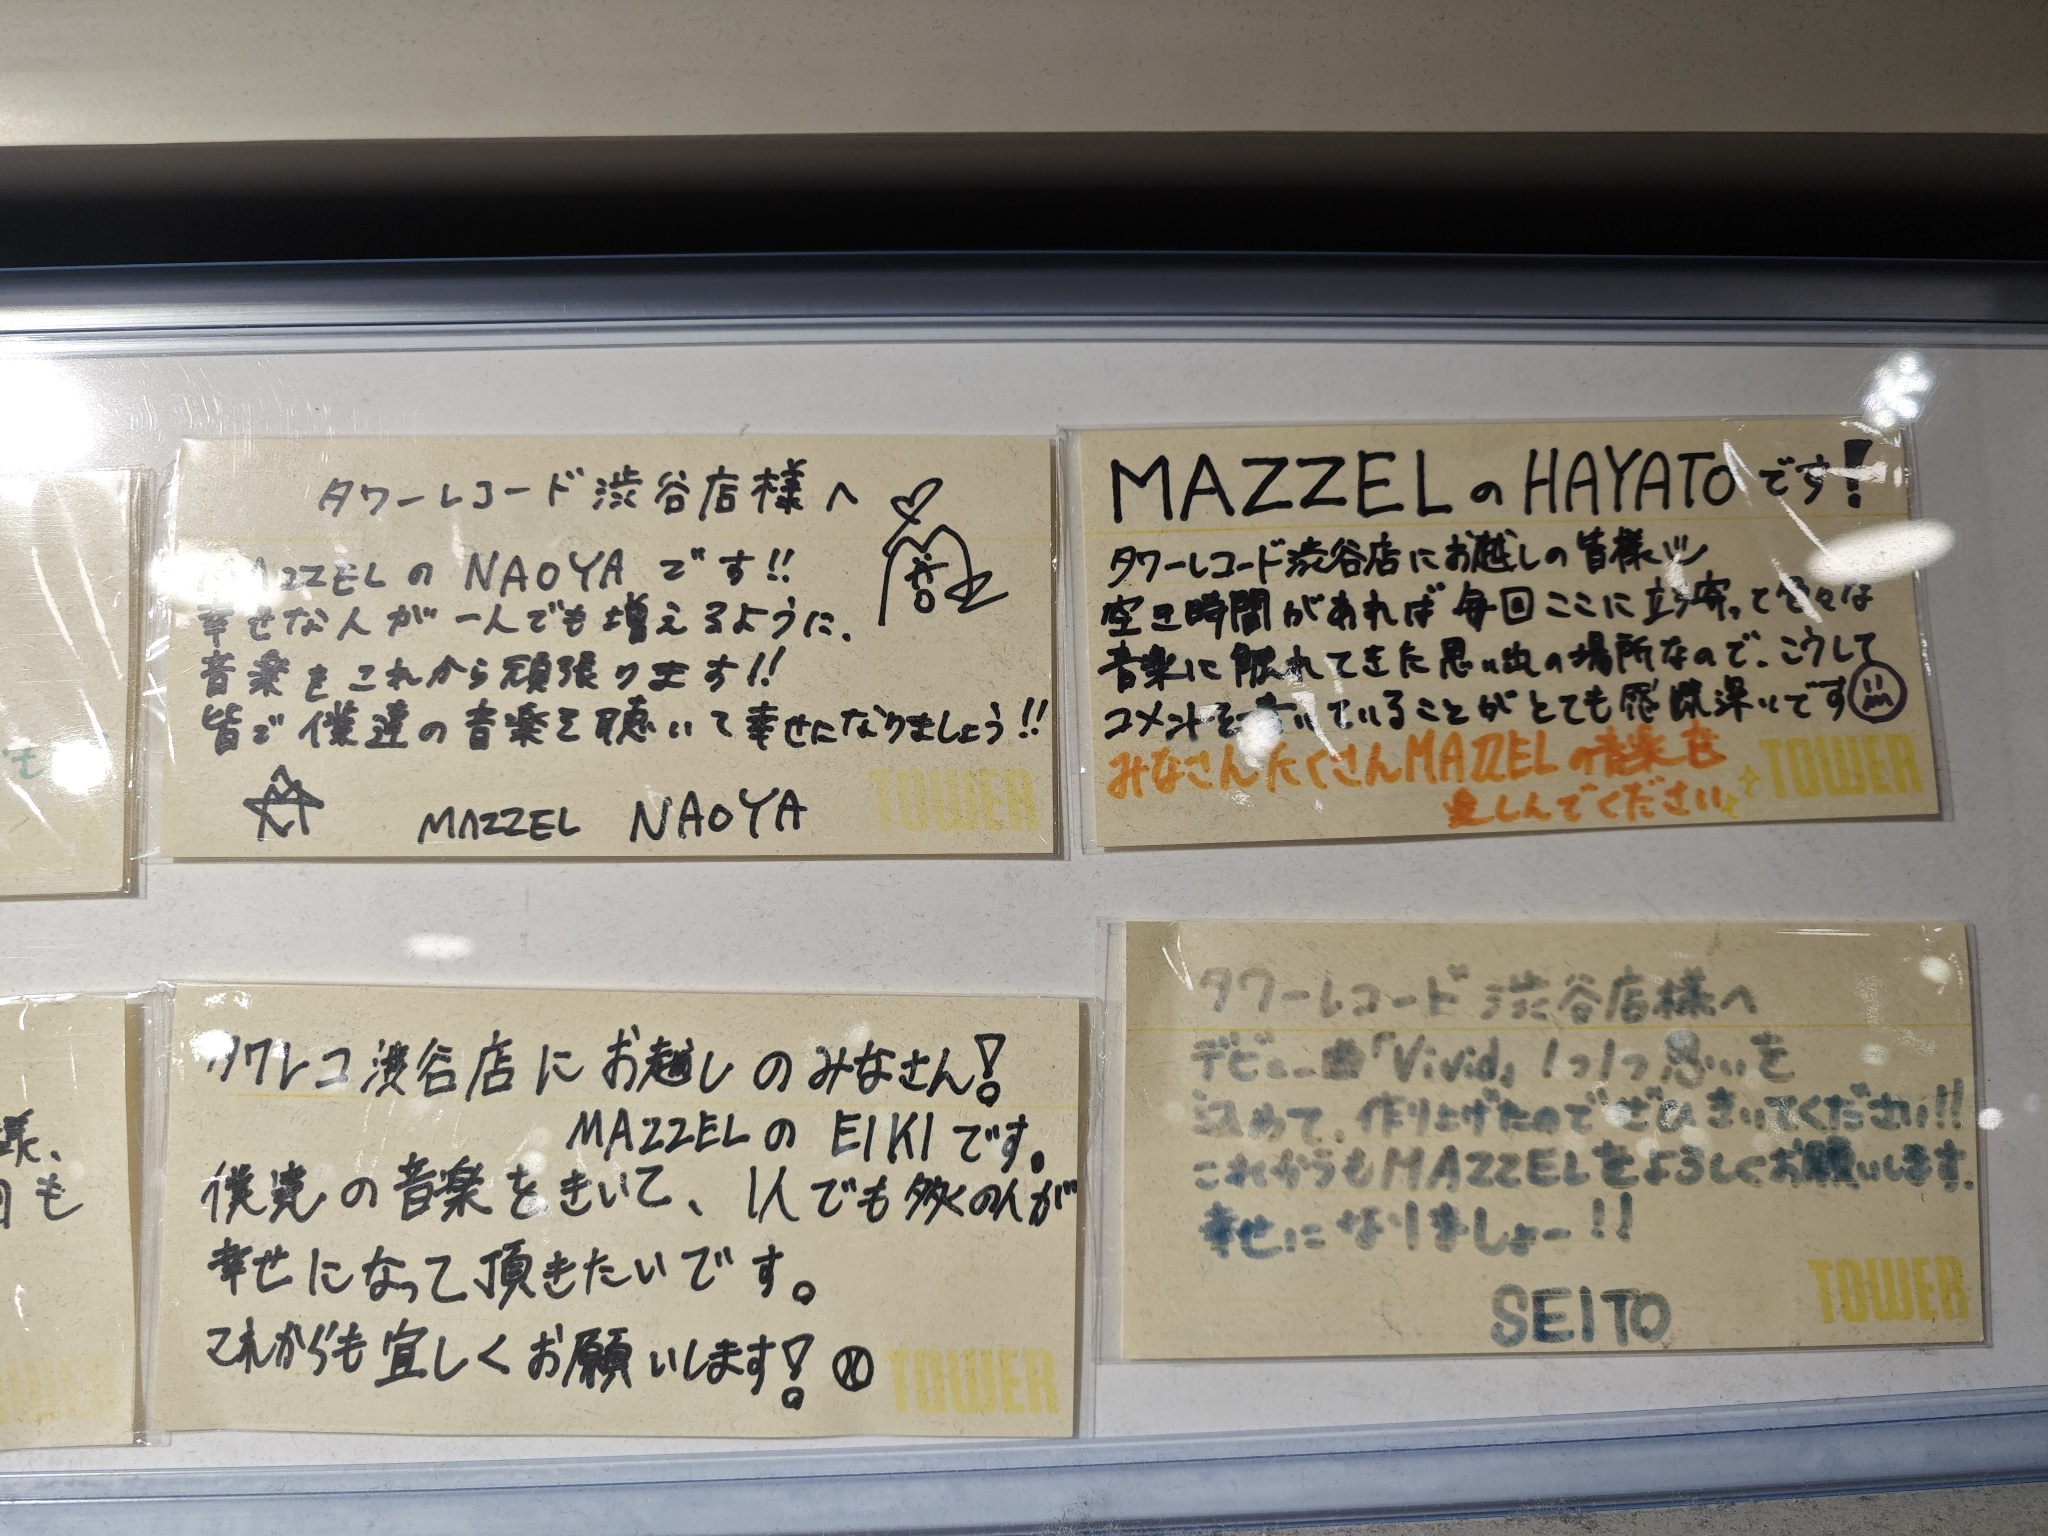 タワーレコード渋谷店様へ
MAZZELの NAOYA です!!
幸せな人が一人でも増えるように、
音楽をこれから頑張ります!!
皆で僕達の音楽を聴いて幸せになりましょう!!
MAZZEL NAOYA
TOWER
MAZZELのHAYATOです!
タワーレコード渋谷店にお越しの皆様
空き時間があれば毎回ここに立ち寄って色々な
音楽に触れてきた思い出の場所なので、こうして
コメントを書いていることがとても感慨深いです
みなさんたくさんMAZZELの音楽を
楽しんでください
TOWER
も
様、
も
TOWER
タワレコ渋谷店にお越しのみなさん!
MAZZELの EIKIです。
僕達の音楽をきいて、1人でも多くの人が
幸せになって頂きたいです。
これからも宜しくお願いします!
TOWER
タワーレコード渋谷店様へ
デビュー曲「Vivid」1つ1つ思いを
込めて、作り上げたのでぜひきいてください!!
これからもMAZZELをよろしくお願いします。
幸せになりましょー!!
SEITO
TOWER